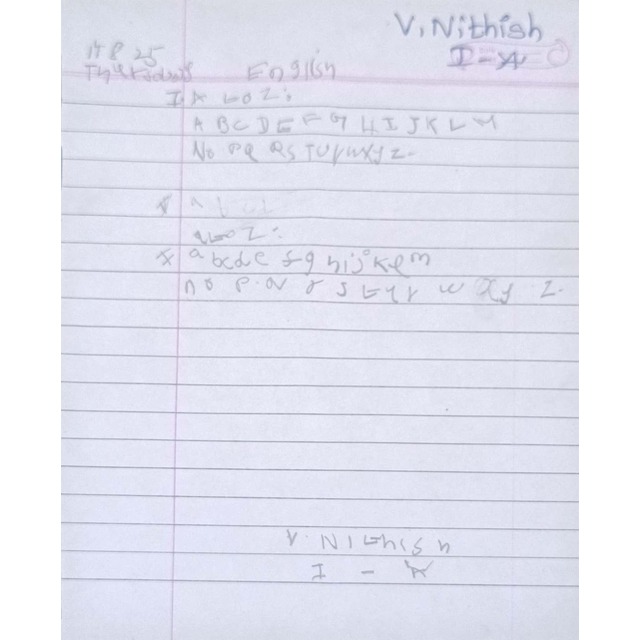 V. Nithish
I - A
8.25
English
I A to Z:
A B C D E F G H I J K L M
No PQ RS TUVWXYZ.
a to Z:
a bcde fg hijklm
no p. q r s t u v w x y z.
V. Nithish
I - A